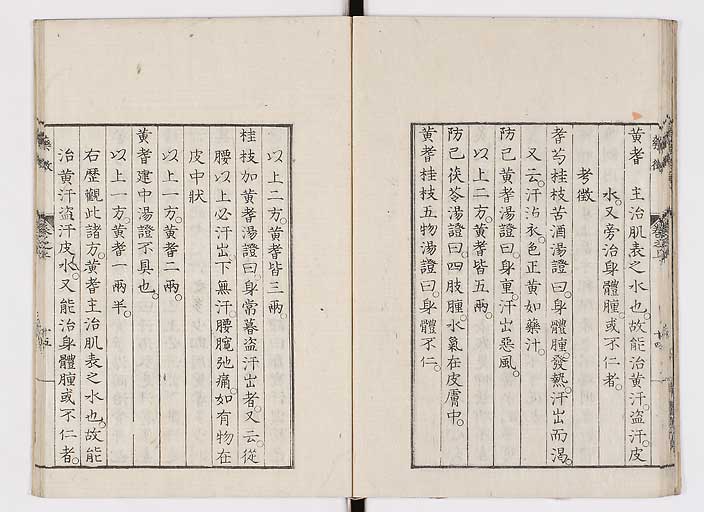 黄耆　主治肌表之水也。故能治黄汗。盗汗。皮
水。又旁治身體腫。或不仁者。
考徴
耆芍桂枝苦酒湯證曰。身體腫。發熱。汗出而渇。
又云。汗沾衣。色正黄如蘗汁。
防已黄耆湯證曰。身重。汗出惡風。
以上二方。黄耆皆五兩。
防已茯苓湯證曰。四肢腫。水氣在皮膚中。
黄耆桂枝五物湯證曰。身體不仁。
以上二方。黄耆皆三兩。
桂枝加黄耆湯證曰。身常暮盗汗出者。又云。從
腰以上必汗出。下無汗。腰髖弛痛。如有物在
皮中狀
以上一方。黄耆二兩。
黄耆建中湯證不具也。
以上一方。黄耆一兩半。
右歷觀此諸方。黄耆主治肌表之水也。故能
治黄汗盗汗皮水。又能治身體腫或不仁者。